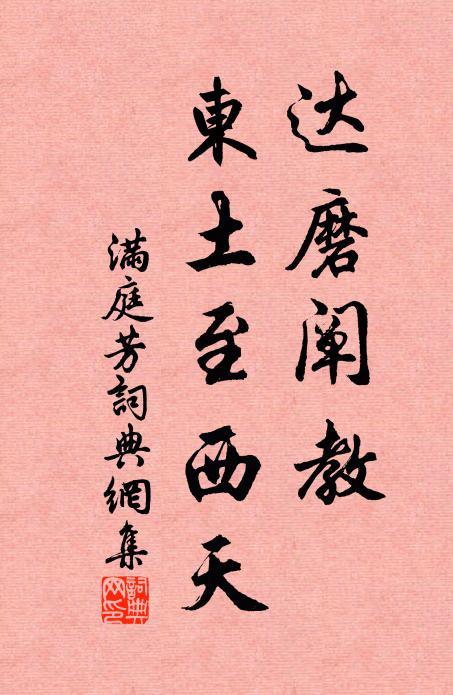 达磨阐教
東土至西天
滿庭芳詞典網集
詞典網印